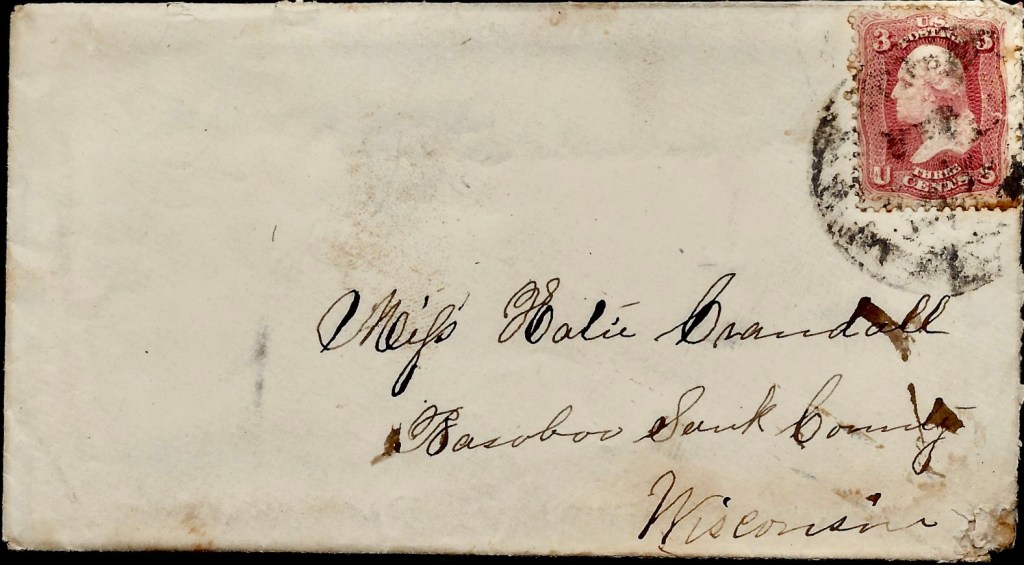 U.S.
POSTAGE
3 3
U S
THREE
CENTS
Miss Katie Crandall
Baroboo Sauk County
Wisconsin